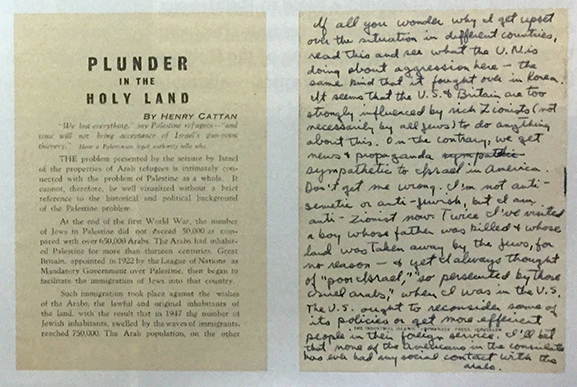 PLUNDER
IN THE
HOLY LAND
BY HENRY CATTAN
"We lost everything," say Palestine refugees—"and
time will not bring acceptance of Israel's gun-point
thievery." Here a Palestinian legal authority tells why.
THE problem presented by the seizure by Israel
of the properties of Arab refugees is intimately con-
nected with the problem of Palestine as a whole. It
cannot, therefore, be well visualized without a brief
reference to the historical and political background
of the Palestine problem.
At the end of the first World War, the number
of Jews in Palestine did not exceed 50,000 as com-
pared with over 650,000 Arabs. The Arabs had inhabit-
ed Palestine for more than thirteen centuries. Great
Britain, appointed in 1922 by the League of Nations as
Mandatory Government over Palestine, then began to
facilitate the immigration of Jews into that country.
Such immigration took place against the wishes
of the Arabs, the lawful and original inhabitants of
the land, with the result that in 1947 the number of
Jewish inhabitants, swelled by the waves of immigrants,
reached 750,000. The Arab population, on the other
If all you wonder why I get upset
over the situation in different countries,
read this and see what the U.N. is
doing about aggression here – the
same kind that it fought over in Korea.
It seems that the U.S. & Britain are too
strongly influenced by rich Zionists (not
necessarily by all jews) to do anything
about this. On the contrary, we get
news & propaganda sympathetic
sympathetic to Israel in America.
Don't get me wrong. I'm not anti-
semetic or anti-Jewish, but I am
anti-Zionist now. Twice I've visited
a boy whose father was killed & whose
land was taken away by the Jews, for
no reason – & yet I always thought
of "poor Israel," "so persecuted by those
cruel arabs," when I was in the U.S.
The U.S. ought to reconsider some of
its policies or get more efficient
THE INDUSTRIAL ISLAMIC ORPHANAGE PRESS, JERUSALEM
people in their foreign service. I'll bet
that none of the Americans in the consulate
has ever had any social contact with the
arabs.